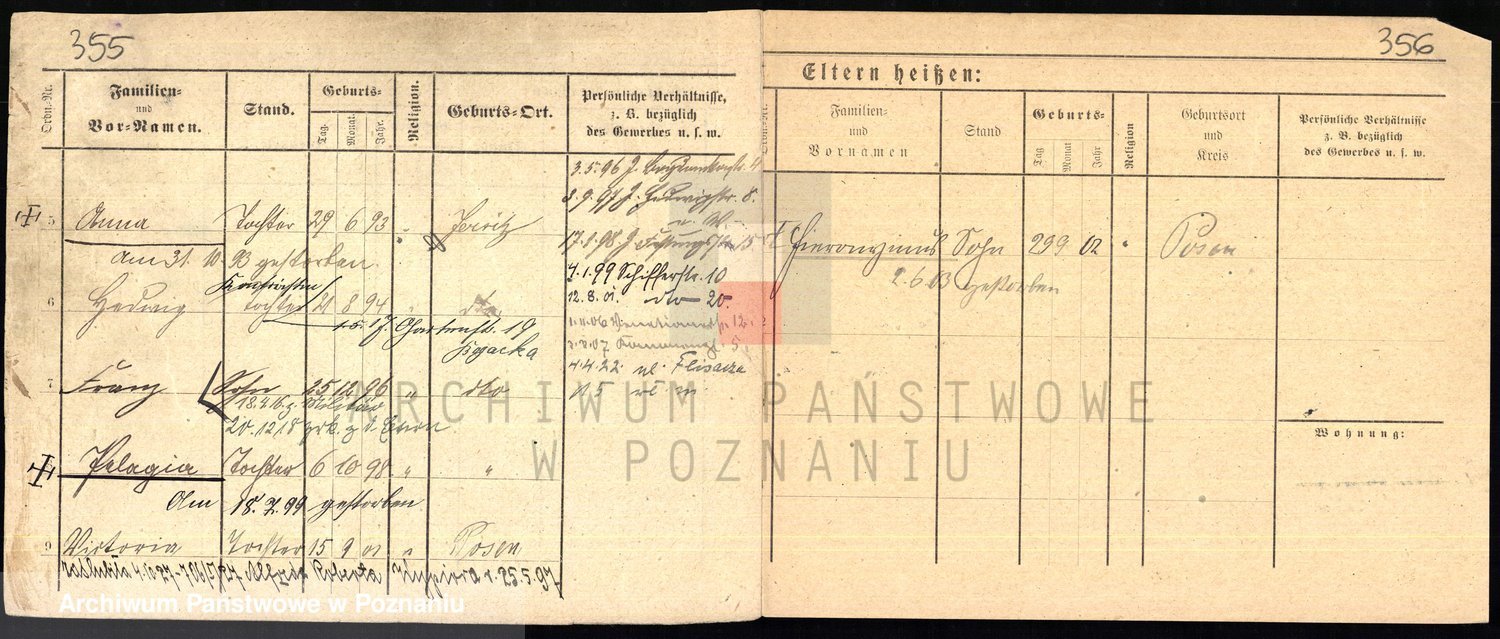 355
Ordn.-Nr.
Familien-
und
Vor-Namen.
Stand.
Geburts-
Tag.
Monat.
Jahr.
Religion.
Geburts-Ort.
Persönliche Verhältnisse,
z. B. bezüglich
des Gewerbes u. s. w.
3.5.96 J.
8.9.97 J. Hedwigstr. 8.
5 Anna Tochter 29 6 93 " Jersitz
17.1.98 J. 15
am 31. 10 93 gestorben.
4.1.99 Schifferstr. 10
6 Hedwig Tochter 21 8 94 " dto
12.8.01. dto 20.
19
7 Franz Sohn 25 12 96 " dto
4.4.22 ul. Flisacza
15
18.4.16. z. Militär
20.12 18 zrk. z. d. Eltern
Pelagia Tochter 6 10 98 " "
Am 18.7.99 gestorben.
9 Victoria Tochter 15 9 01 " Posen
4.10 27 Alfred Roberta 25.5.97
356
Eltern heißen:
Ordn.-Nr.
Familien-
und
Vornamen
Stand
Geburts-
Tag
Monat
Jahr
Religion
Geburtsort
und
Kreis
Persönliche Verhältnisse
z. B. bezüglich
des Gewerbes u. s. w.
Hieronymus Sohn 29 9 02 " Posen
2.6.03 gestorben
2
Wohnung:
ARCHIWUM PAŃSTWOWE
W POZNANIU
Archiwum Państwowe w Poznaniu